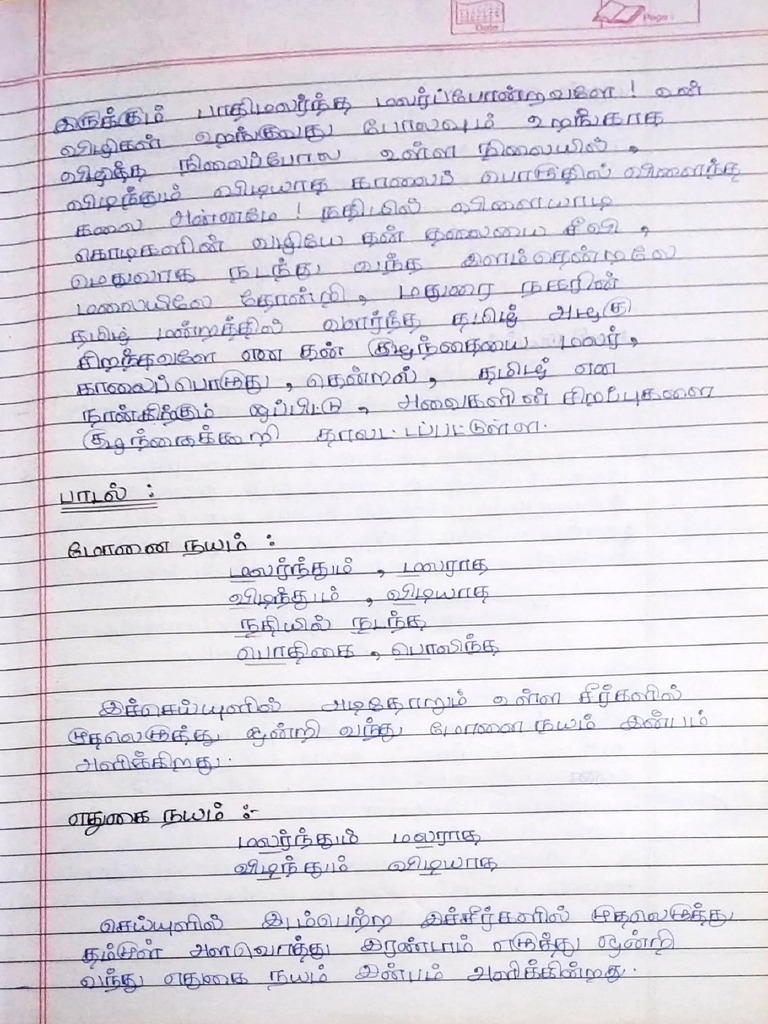 Date Page :
இருக்கும் பாதிமலர்ந்த மலர்ப்போன்றவளே! உன்
விழிகள் உறங்குவது போலவும் உறங்காத
விழித்த நிலைப்போல உள்ள நிலையில்,
விடிந்தும் விடியாத காலைப் பொழுதில் விளைந்த
கலை அன்னமே! நதியில் விளையாடி
கொடிகளின் வழியே தன் தலையை சீவி,
மெதுவாக நடந்து வந்த இளம்தென்றலே
மலையிலே தோன்றி, மதுரை நகரின்
தமிழ் மன்றத்தில் வளர்ந்த தமிழ் அழகு
சிறந்தவளே என தன் குழந்தையை மலர்,
காலைப்பொழுது, தென்றல், தமிழ் என
நான்கிற்கும் ஒப்பிட்டு, அவைகளின் சிறப்புகளை
குழந்தைக்கூறி தாலட்டப்பட்டுள்ள.
பாடல் :
மோனை நயம் :
மலர்ந்தும், மலராத
விடிந்தும், விடியாத
நதியில் நடந்த
பொதிகை, பொலிந்த
இச்செய்யுளில் அடிதோறும் உள்ள சீர்களில்
முதலெழுத்து ஒன்றி வந்து மோனை நயம் இன்பம்
அளிக்கிறது.
எதுகை நயம் :-
மலர்ந்தும் மலராத
விடிந்தும் விடியாத
செய்யுளில் இடம்பெற்ற இச்சீர்களில் முதலெழுத்து
தம்முள் அளவொத்து இரண்டாம் எழுத்து ஒன்றி
வந்து எதுகை நயம் இன்பம் அளிக்கின்றது.